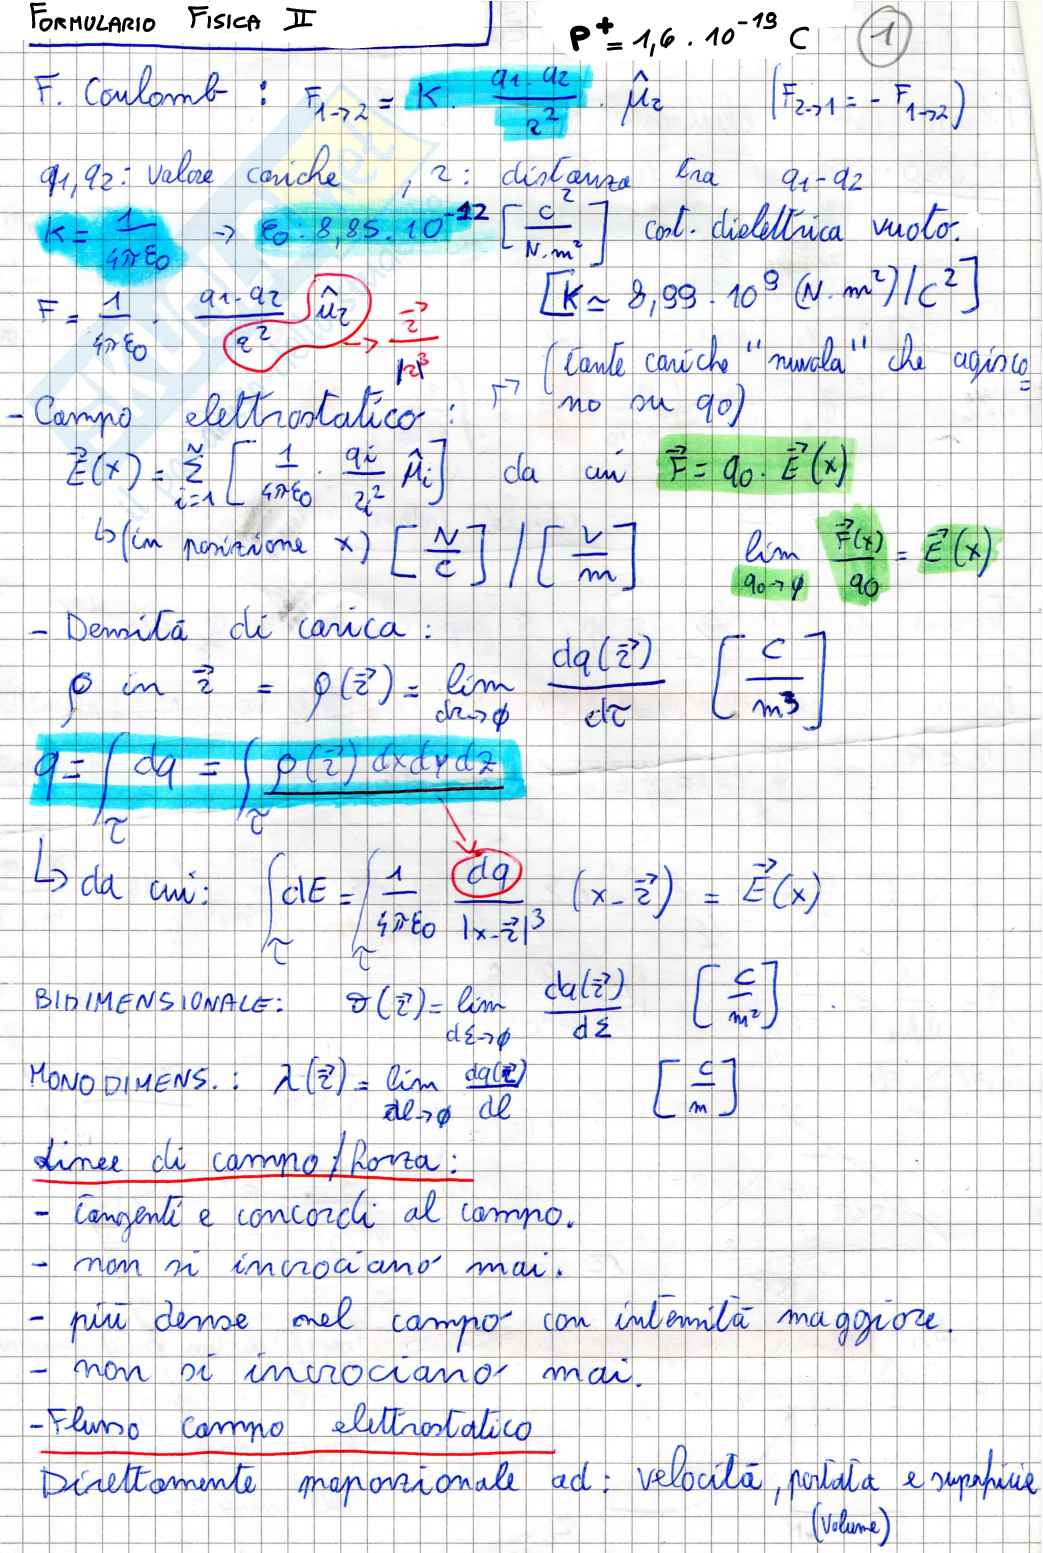 FORMULARIO FISICA II
P⁺ = 1,6 · 10⁻¹⁹ C
1
F. Coulomb : F₁→₂ = K · (q1 · q2)/r² · û_r (F₂→₁ = - F₁→₂)
q1, q2 : valore cariche , r : distanza tra q1-q2
K = 1/(4πε0) → ε0 : 8,85 · 10⁻¹² [C²/(N·m²)] cost. dielettrica vuoto.
[K ≃ 8,99 · 10⁹ (N·m²)/C²]
F = 1/(4πε0) · (q1·q2)/r² û_r → r⃗/|r|³
(tante cariche "nuvola" che agisco=
no su q0)
- Campo elettrostatico :
E⃗(x) = Σ_{i=1}^{N} [1/(4πε0) · qi/ri² û_i] da cui F⃗ = q0 · E⃗(x)
↳ (in posizione x) [N/C] / [V/m] lim_{q0→φ} F⃗(x)/q0 = E⃗(x)
- Densità di carica :
ρ in r⃗ = ρ(r⃗) = lim_{dτ→φ} dq(r⃗)/dτ [C/m³]
q = ∫_τ dq = ∫_τ ρ(r⃗) dxdydz
↳ da cui: ∫_τ dE = ∫_τ 1/(4πε0) dq/|x-r⃗|³ (x-r⃗) = E⃗(x)
BIDIMENSIONALE: σ(r⃗) = lim_{dΣ→φ} dq(r⃗)/dΣ [C/m²]
MONODIMENS. : λ(r⃗) = lim_{dl→φ} dq(r)/dl [C/m]
Linee di campo/forza :
- tangenti e concordi al campo.
- non si incrociano mai.
- più dense nel campo con intensità maggiore.
- non si incrociano mai.
- Flusso campo elettrostatico
Direttamente proporzionale ad : velocità, portata e superficie
(volume)